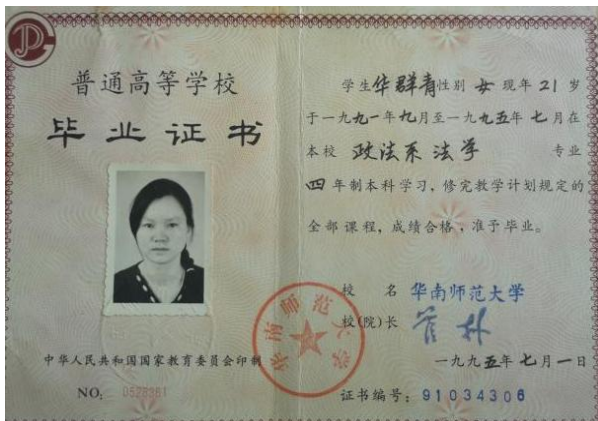 普通高等学校
毕业证书
中华人民共和国国家教育委员会印制
NO: 0528381
学生华群青性别 女 现年 21 岁
于一九九一年九月至一九九五年 七月在
本校 政法系法学 专业
四年制本科学习，修完教学计划规定的
全部课程，成绩合格，准予毕业。
校 名 华南师范大学
校(院)长 管林
一九九五年七月一日
证书编号：91034306
华南师范大学